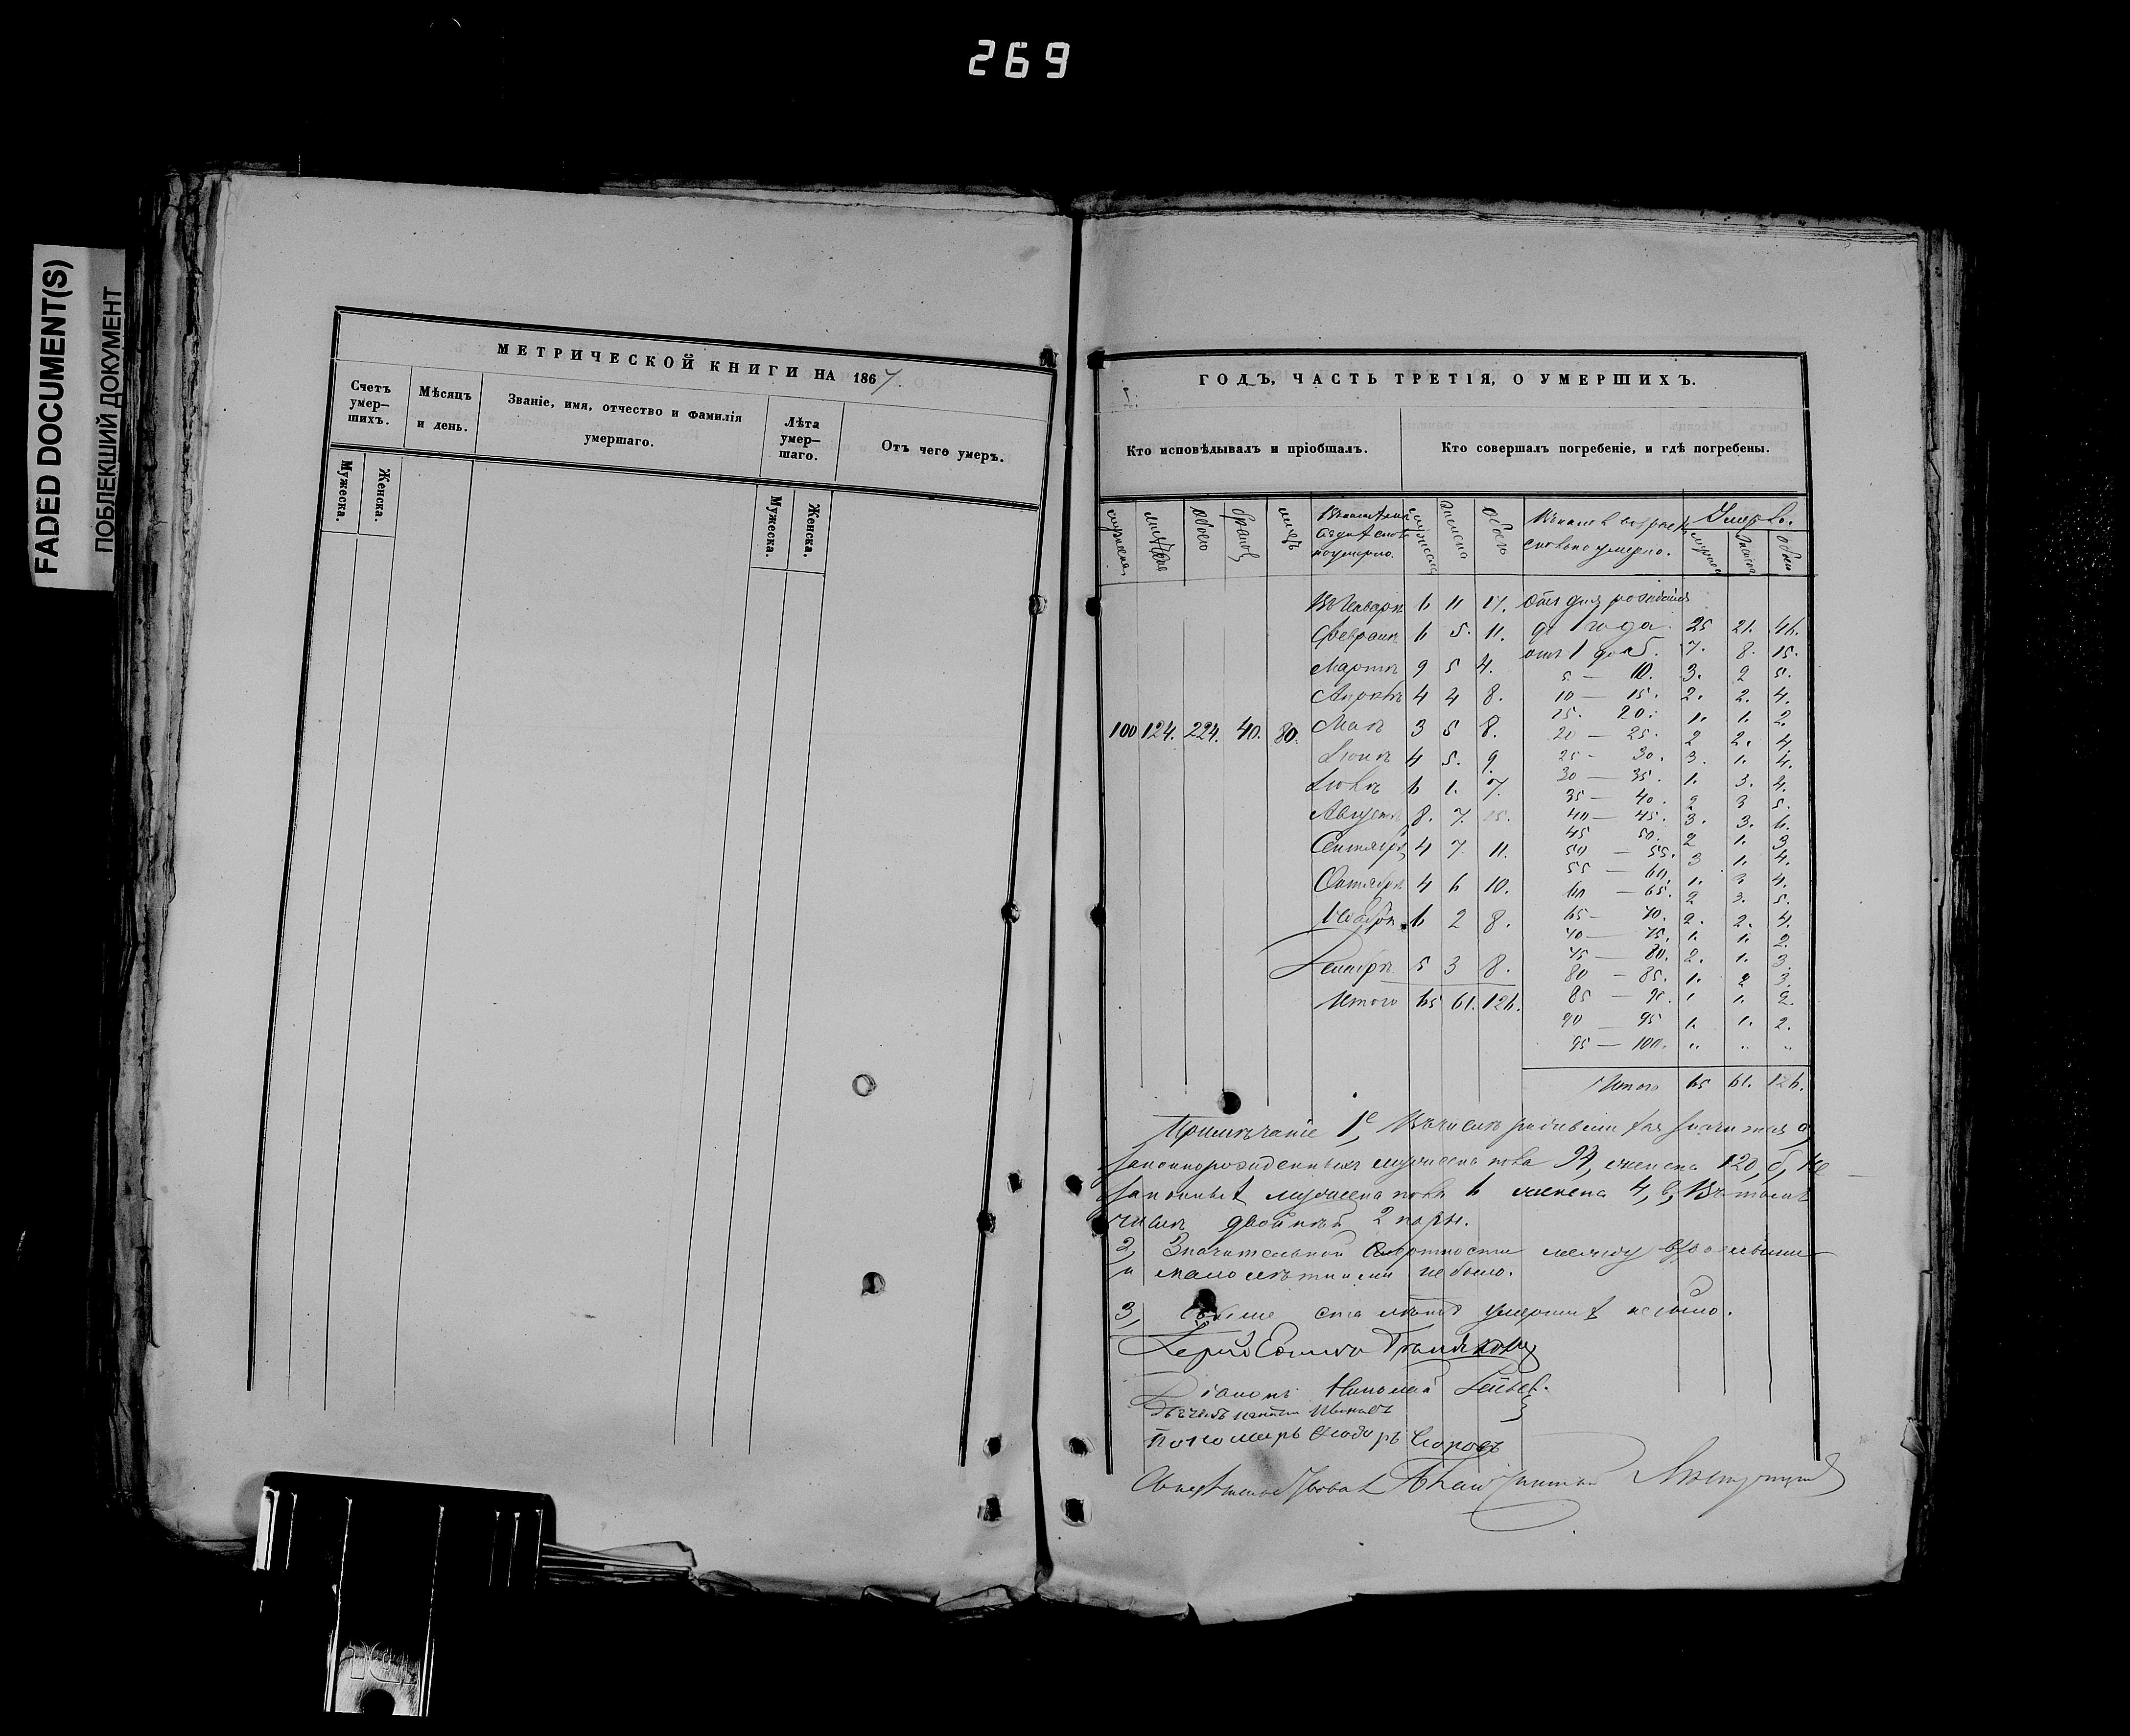 269
FADED DOCUMENT(S)
ПОБЛЕКШИЙ ДОКУМЕНТ
МЕТРИЧЕСКОЙ КНИГИ НА 1867.
Счетъ умер—шихъ.
Мѣсяцъ и день.
Званіе, имя, отчество и фамилія умершаго.
Лѣта умер—шаго.
Отъ чего умеръ.
Мужеска.
Женска.
Мужеска.
Женска.
ГОДЪ, ЧАСТЬ ТРЕТІЯ, О УМЕРШИХЪ.
Кто исповѣдывалъ и пріобщалъ.
Кто совершалъ погребеніе, и гдѣ погребены.
обоего
браковъ
лицъ
женска
обоего
сколько умерло.
100 124. 224. 40. 80.
Въ Январѣ 6 11 17.
Февралѣ 6 5. 11.
Мартѣ 9 5 4.
Апрѣлѣ 4 4 8.
Маѣ 3 5 8.
Іюнѣ 4 5. 9.
Іюлѣ 6 1. 7.
Августѣ 8. 7. 15.
Сентябрѣ 4 7. 11.
Октябрѣ 4 6 10.
Ноябрѣ 6 2 8.
Декабрѣ 5 3 8.
Итого 65 61. 126.
Отъ дня рожденія
до 1 года. 25 21. 46.
отъ 1 до 5. 7. 8. 15.
5 — 10. 3. 2 5.
10 — 15. 2. 2. 4.
15. 20. 1. 1. 2.
20 — 25. 2 2. 4.
25 — 30. 3. 1. 4.
30 — 35. 1. 3. 4.
35 — 40. 2 3 5.
40 — 45. 3. 3. 6.
45 50. 2 1. 3
50 — 55. 3 1. 4.
55 — 60. 1. 3 4.
60 — 65. 2 3. 5.
65 — 70. 2. 2. 4.
70 — 75. 1. 1. 2.
75 — 80. 2. 1. 3.
80 — 85. 1. 2 3.
85 — 90. 1 1. 2.
90 — 95 1. 1. 2.
95 — 100. " " "
Итого 65 61. 126.
Примѣчаніе 1е, Въ числѣ родившихся значится а,
законнорожденныхъ мужеска пола 94, женска 120, б, Не
законныхъ мужеска пола 6 женска 4, в, Въ томъ
числѣ двойней 2 пары.
2, Значительной смертности между взрослыми
и малолѣтними не было.
3, Свыше ста лѣтъ умершихъ не было.
Іерей
Діаконъ Николай
Пономарь Ѳеодоръ